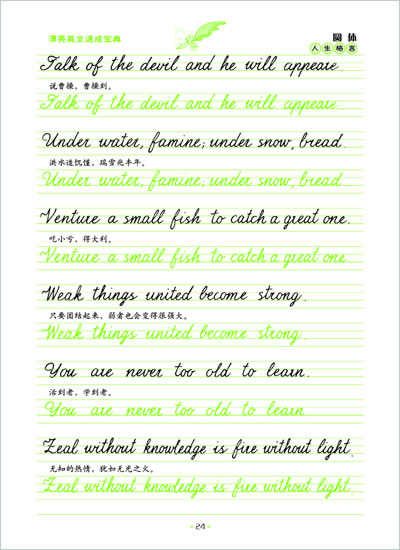 漂亮英文速成宝典
圆体
人生格言
Talk of the devil and he will appeare.
说曹操，曹操到。
Talk of the devil and he will appeare.
Under water, famine; under snow, bread.
洪水造饥馑，瑞雪兆丰年。
Under water, famine; under snow, bread.
Venture a small fish to catch a great one.
吃小亏，得大利。
Venture a small fish to catch a great one.
Weak things united become strong.
只要团结起来，弱者也会变得很强大。
Weak things united become strong.
You are never too old to learn.
活到老，学到老。
You are never too old to learn.
Zeal without knowledge is fire without light.
无知的热情，犹如无光之火。
Zeal without knowledge is fire without light.
24